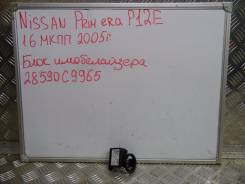 NiSSAN Primera P12E
1.6 МКПП 2005г.
Блок имобелайзера
28590C9965